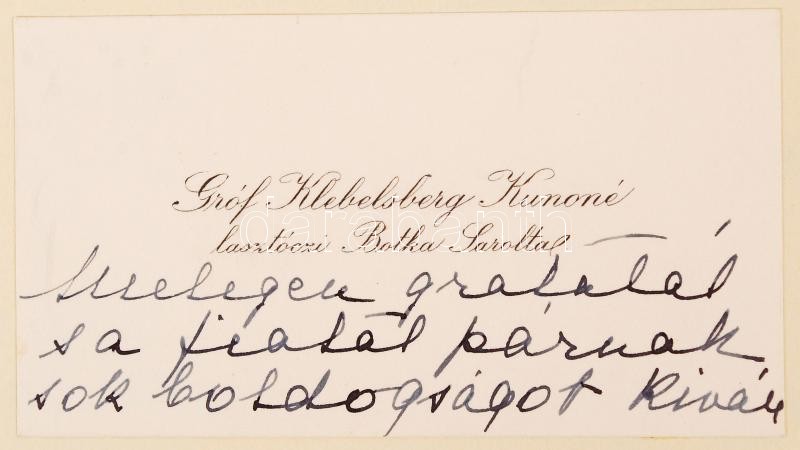 Gróf Klebelsberg Kunoné
lasztóczi Botka Sarolta
melegen gratulál
s a fiatal párnak
sok boldogságot kíván
darabanth